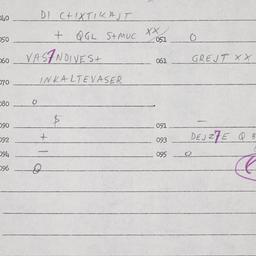 040 DI C+IXTIKAJT
050 + QGL S+MUC XX 051 O
060 VAS7NDIVES+ 061 GREJT XX
070 INKALTEVASER
080 O
090 $ 091 —
092 + 093 DEJZ7E Q
094 — 095 O
096 Q